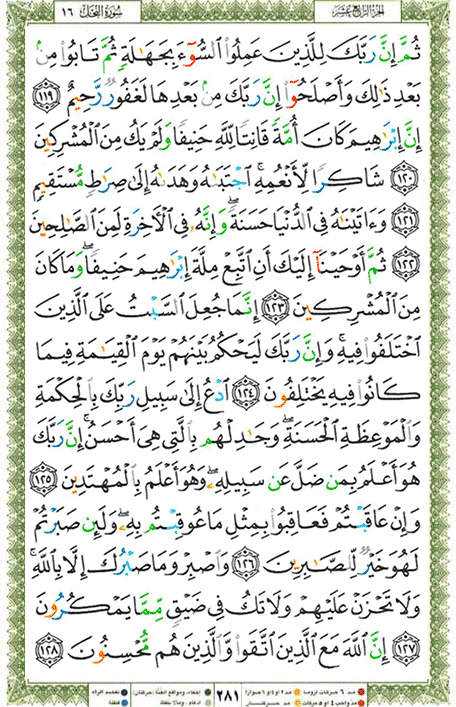 سُورَةُ النَّحۡلِ ١٦
الجزء الرابع عشر
ثُمَّ إِنَّ رَبَّكَ لِلَّذِينَ عَمِلُواْ ٱلسُّوٓءَ بِجَهَٰلَةٖ ثُمَّ تَابُواْ مِنۢ
بَعۡدِ ذَٰلِكَ وَأَصۡلَحُوٓاْ إِنَّ رَبَّكَ مِنۢ بَعۡدِهَا لَغَفُورٞ رَّحِيمٌ ١١٩
إِنَّ إِبۡرَٰهِيمَ كَانَ أُمَّةٗ قَانِتٗا لِّلَّهِ حَنِيفٗا وَلَمۡ يَكُ مِنَ ٱلۡمُشۡرِكِينَ
١٢٠ شَاكِرٗا لِّأَنۡعُمِهِۚ ٱجۡتَبَىٰهُ وَهَدَىٰهُ إِلَىٰ صِرَٰطٖ مُّسۡتَقِيمٖ
١٢١ وَءَاتَيۡنَٰهُ فِي ٱلدُّنۡيَا حَسَنَةٗۖ وَإِنَّهُۥ فِي ٱلۡأٓخِرَةِ لَمِنَ ٱلصَّٰلِحِينَ
١٢٢ ثُمَّ أَوۡحَيۡنَآ إِلَيۡكَ أَنِ ٱتَّبِعۡ مِلَّةَ إِبۡرَٰهِيمَ حَنِيفٗاۖ وَمَا كَانَ
مِنَ ٱلۡمُشۡرِكِينَ ١٢٣ إِنَّمَا جُعِلَ ٱلسَّبۡتُ عَلَى ٱلَّذِينَ
ٱخۡتَلَفُواْ فِيهِۚ وَإِنَّ رَبَّكَ لَيَحۡكُمُ بَيۡنَهُمۡ يَوۡمَ ٱلۡقِيَٰمَةِ فِيمَا
كَانُواْ فِيهِ يَخۡتَلِفُونَ ١٢٤ ٱدۡعُ إِلَىٰ سَبِيلِ رَبِّكَ بِٱلۡحِكۡمَةِ
وَٱلۡمَوۡعِظَةِ ٱلۡحَسَنَةِۖ وَجَٰدِلۡهُم بِٱلَّتِي هِيَ أَحۡسَنُۚ إِنَّ رَبَّكَ
هُوَ أَعۡلَمُ بِمَن ضَلَّ عَن سَبِيلِهِۦ وَهُوَ أَعۡلَمُ بِٱلۡمُهۡتَدِينَ ١٢٥
وَإِنۡ عَاقَبۡتُمۡ فَعَاقِبُواْ بِمِثۡلِ مَا عُوقِبۡتُم بِهِۦۖ وَلَئِن صَبَرۡتُمۡ
لَهُوَ خَيۡرٞ لِّلصَّٰبِرِينَ ١٢٦ وَٱصۡبِرۡ وَمَا صَبۡرُكَ إِلَّا بِٱللَّهِۚ
وَلَا تَحۡزَنۡ عَلَيۡهِمۡ وَلَا تَكُ فِي ضَيۡقٖ مِّمَّا يَمۡكُرُونَ
١٢٧ إِنَّ ٱللَّهَ مَعَ ٱلَّذِينَ ٱتَّقَواْ وَّٱلَّذِينَ هُم مُّحۡسِنُونَ ١٢٨
٢٨١